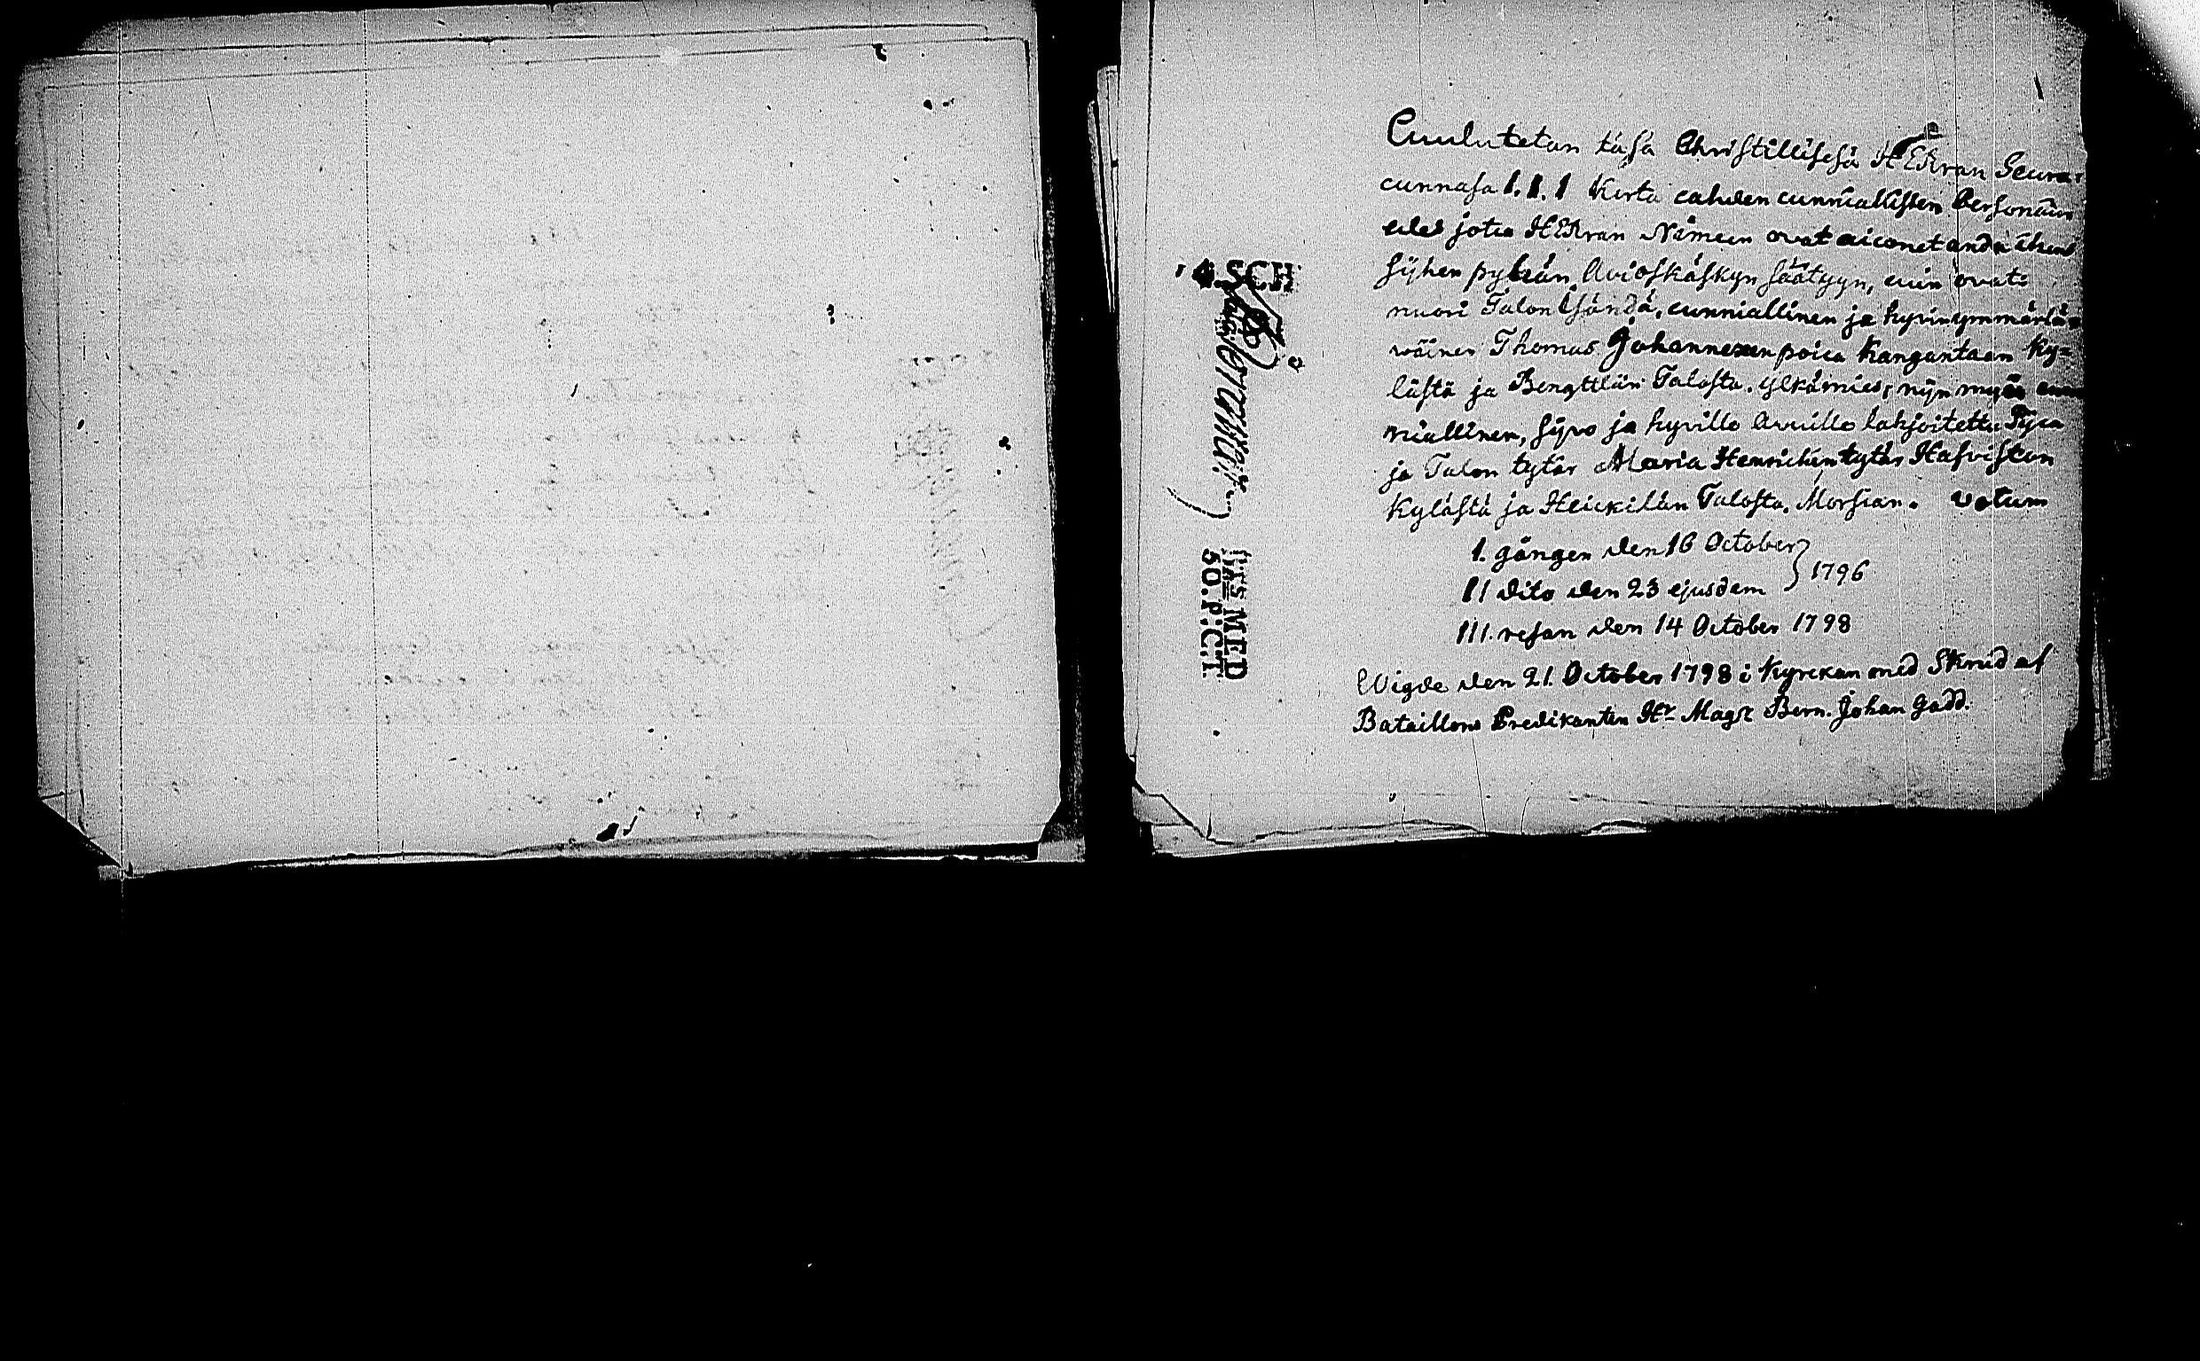 Cuulutetan täsä Christillisesä HERran Seura-
cunnasa I. I. I Kerta cahden cunniallisten Personain
edes jotca HERran Nimeen ovat aiconet anda itzens
syhen pyhän Avioskäskyn Säätyyn, cuin ovat:
nuori Talon Isändä, cunniallinen ja hyvinymmärtä-
wäinen Thomas Johannexen poica Kangantaan Ky-
lästä ja Bengttilän Talosta. ylkämies, nijn myös cun-
niallinen, sijvo ja hyville Avuille lahjoitettu Pijca
ja Talon tytär Maria Henrichin tytär Hafvistan
Kylästä ja Heickilän Talosta. Morsian. votum
I. gången den 16 October
II dito den 23 ejusdem } 1796
III. resan den 14 October 1798
Wigde den 21. October 1798 i Kyrckan med Skrud af
Bataillons Predikanten Hr Mag Bern. Johan Gadd.
4. SCH
MED
50. P:C:T.